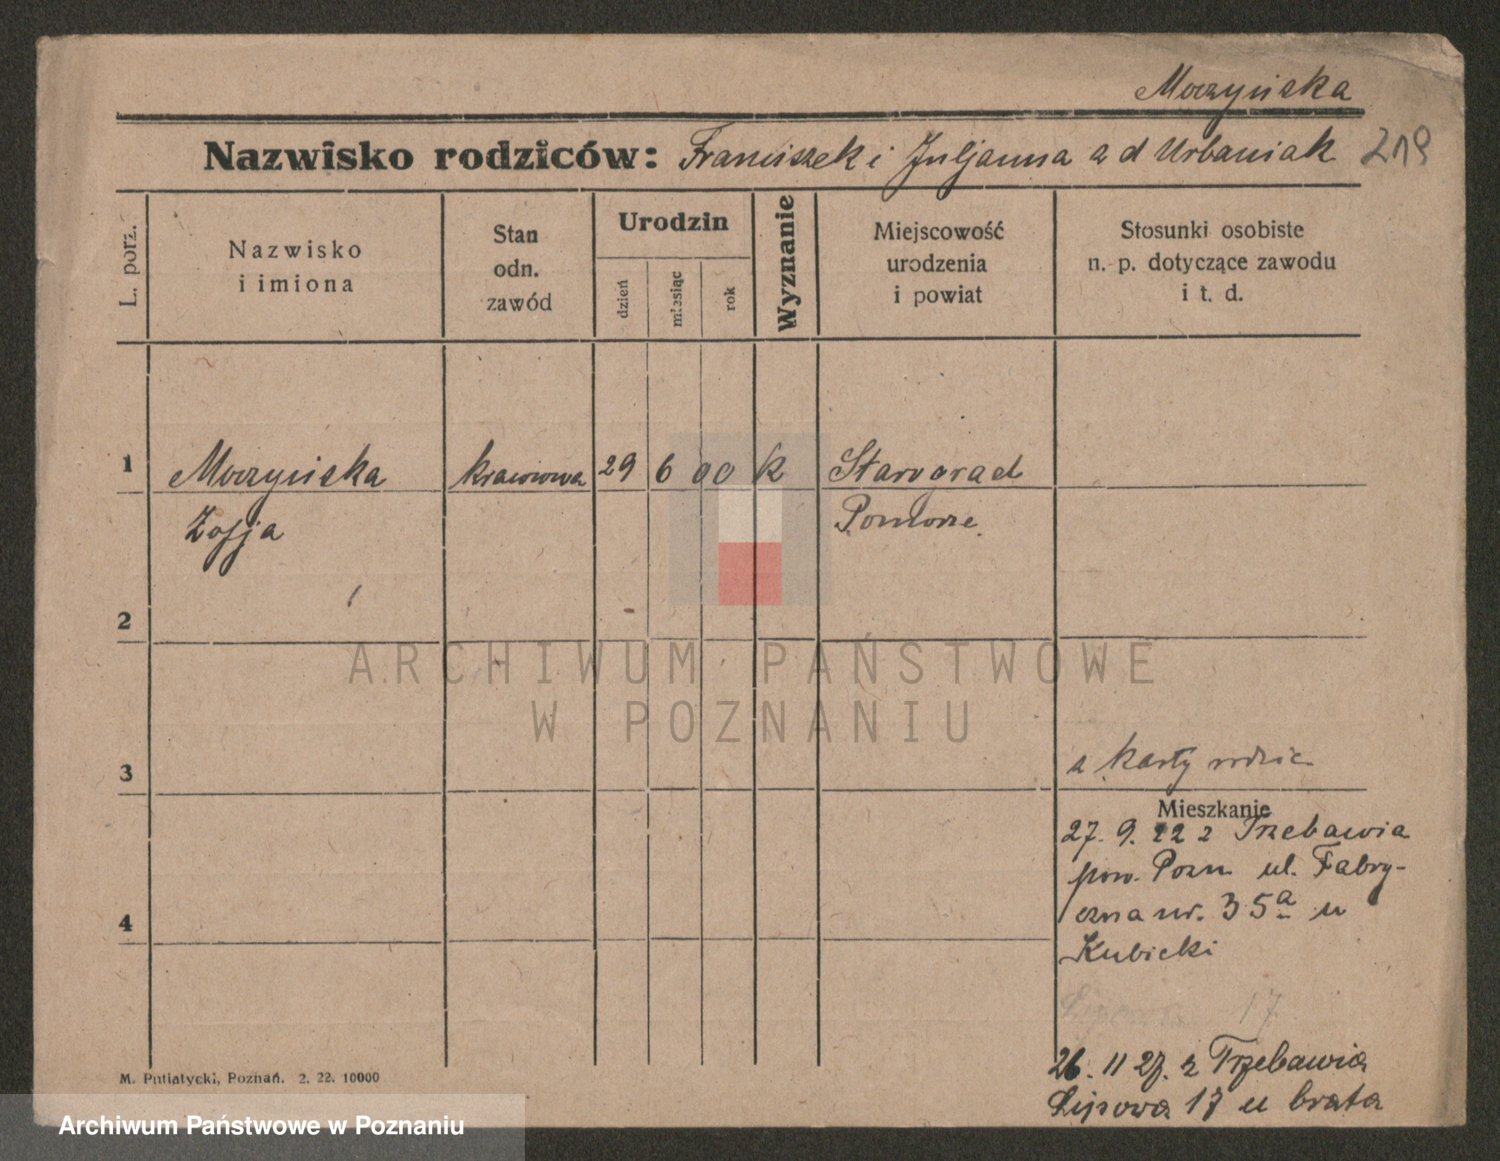 Moczyńska
Nazwisko rodziców: Franciszek i Juljanna z d Urbaniak 219
L. porz.
Nazwisko
i imiona
Stan
odn.
zawód
Urodzin
dzień
miesiąc
rok
Wyznanie
Miejscowość
urodzenia
i powiat
Stosunki osobiste
n. p. dotyczące zawodu
i t. d.
1 Moczyńska krawcowa 29 6 00 k Starogrod
Zofja Pomorze
2
ARCHIWUM PAŃSTWOWE
W POZNANIU
z karty rodzic
3
Mieszkanie
27. 9. 22 z Trzebawia
pow. Pozn ul. Fabry-
czna nr. 35a u
4
Kubicki
Lipowa 17
26. 11 27. z Trzebawia
Lipowa 17 u brata
M. Putiatycki, Poznań. 2. 22. 10000
Archiwum Państwowe w Poznaniu